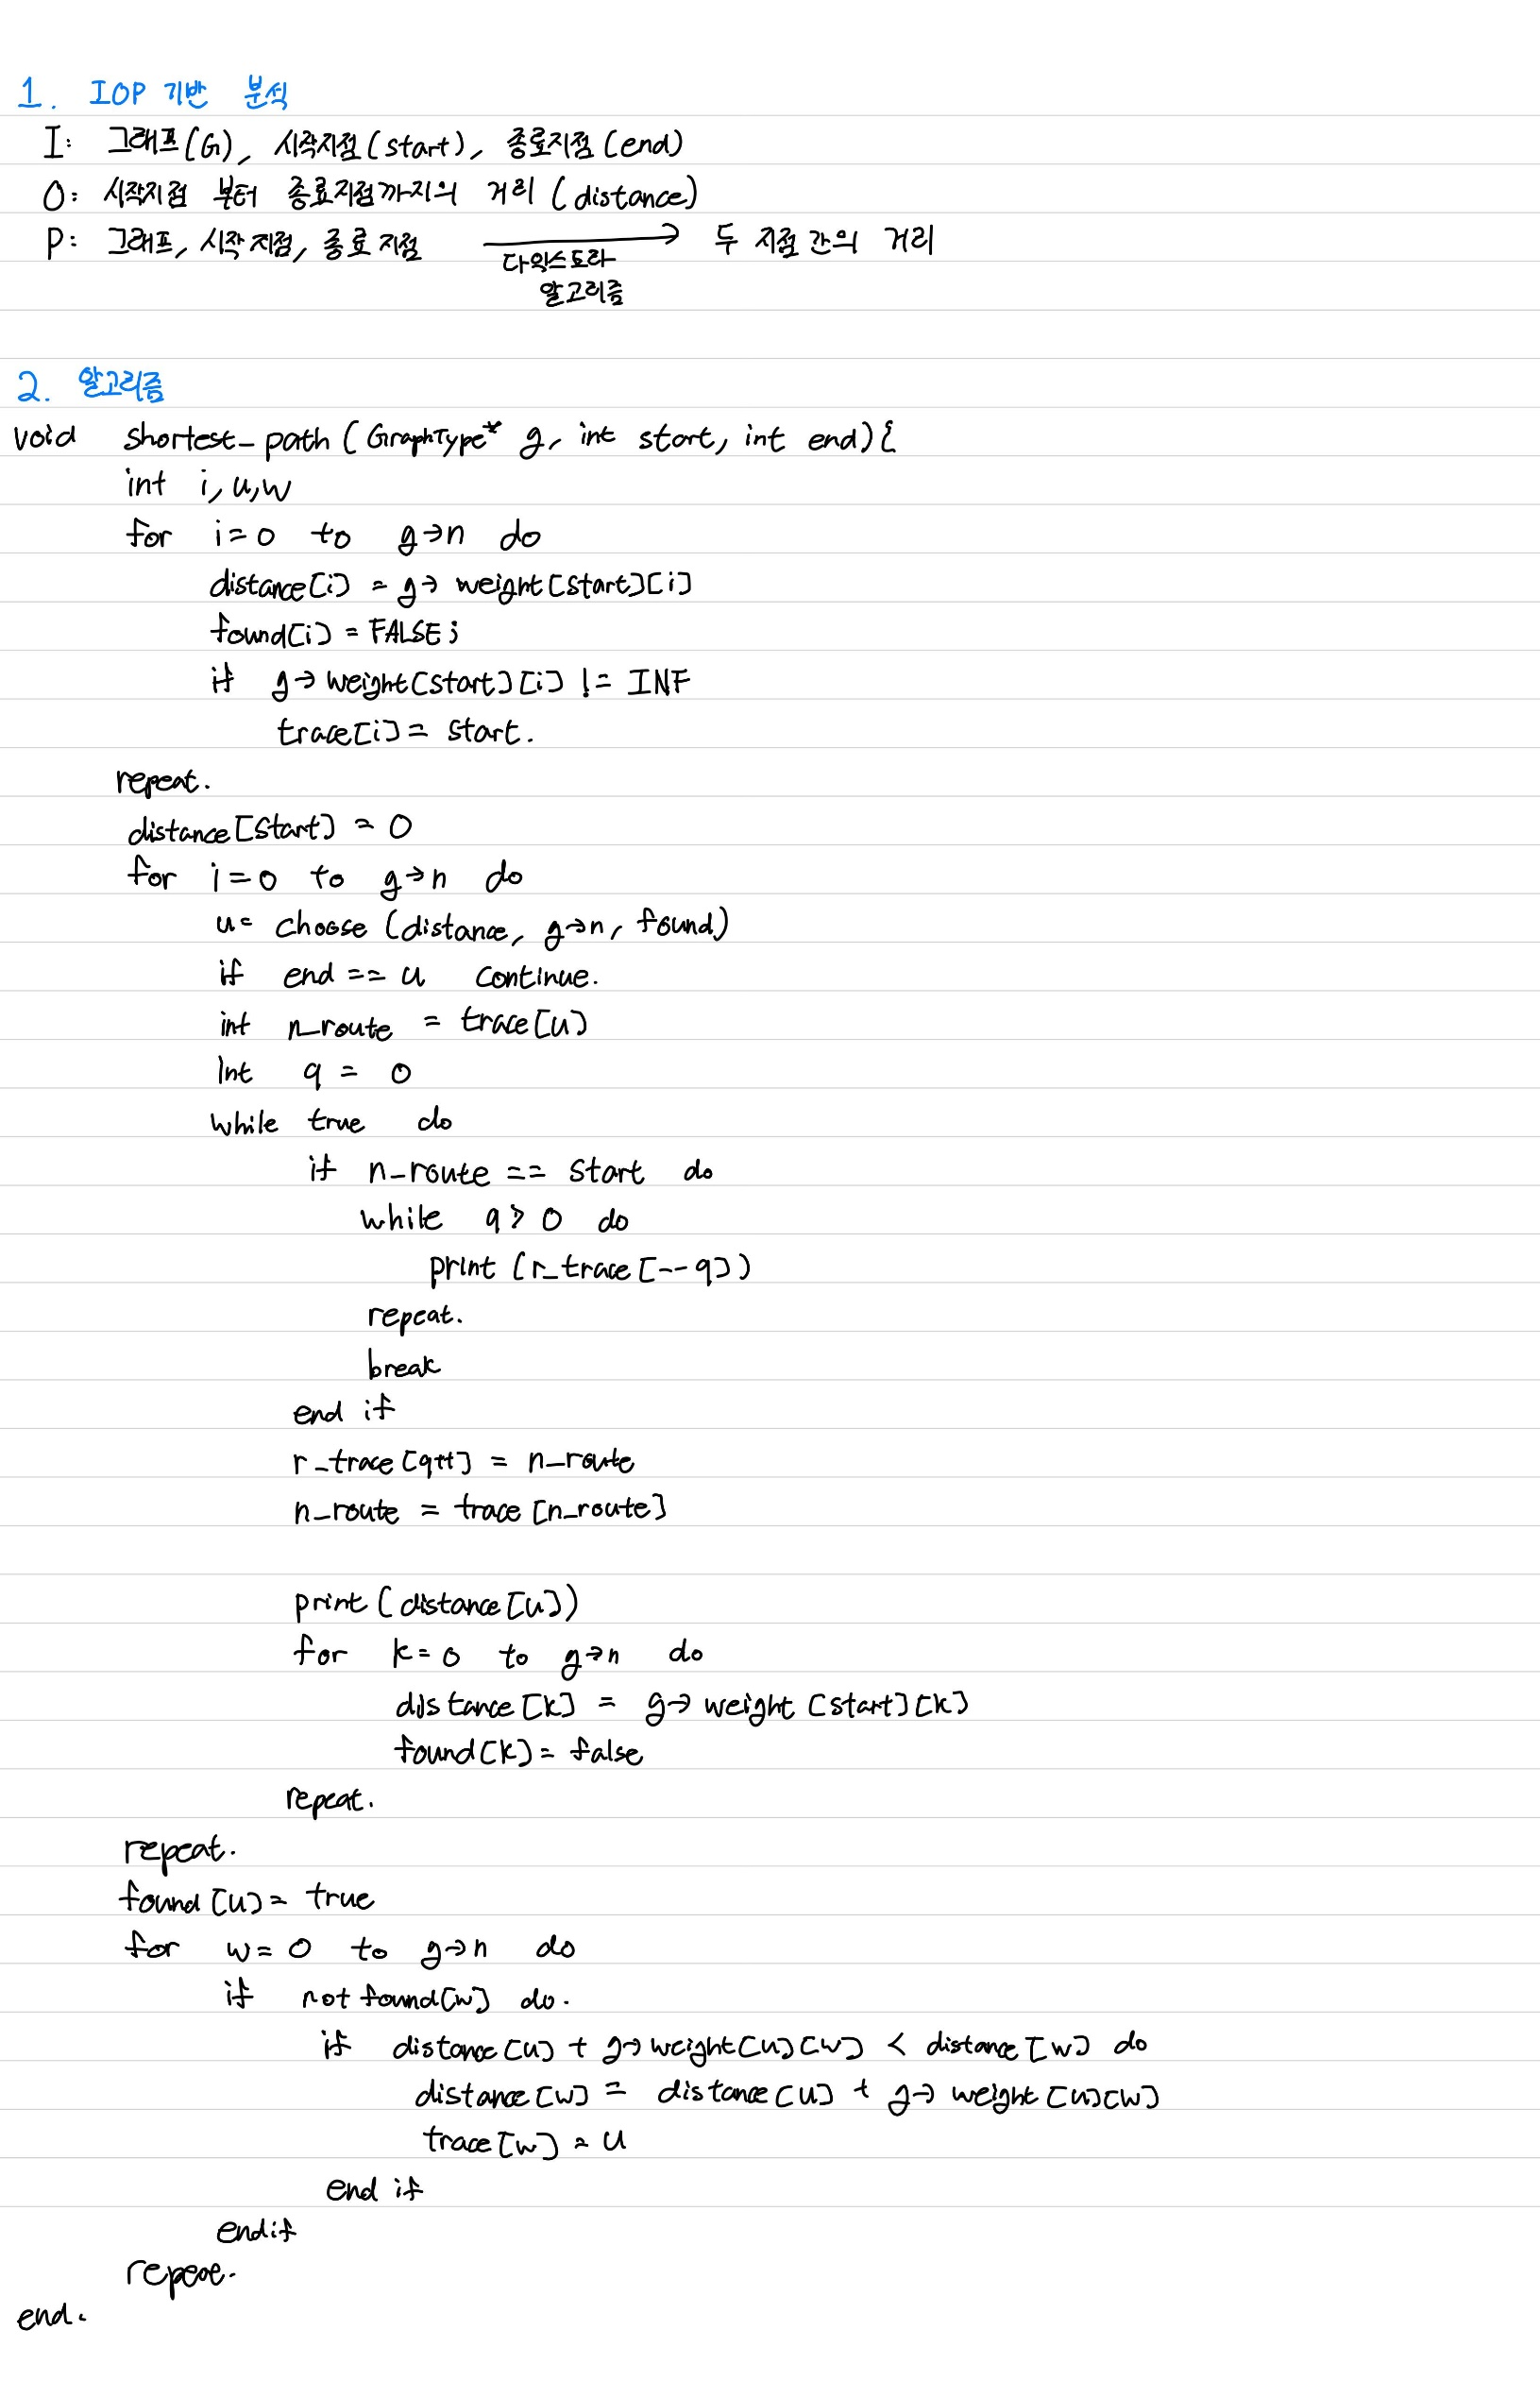 1. IOP 기반 분석
I: 그래프(G), 시작지점(start), 종료지점(end)
O: 시작지점 부터 종료지점까지의 거리 (distance)
P: 그래프, 시작지점, 종료지점 → 두 지점 간의 거리
다익스트라
알고리즘
2. 알고리즘
void shortest_path (GraphType* g, int start, int end){
int i, u, w
for i=0 to g→n do
distance[i] = g→ weight[start][i]
found[i] = FALSE;
if g→ weight[start][i] != INF
trace[i] = start.
repeat.
distance[start] = 0
for i=0 to g→n do
u= choose (distance, g→n, found)
if end == u continue.
int n_route = trace[u]
int q = 0
while true do
if n_route == start do
while q > 0 do
print (r_trace[--q])
repeat.
break
end if
r_trace[q++] = n_route
n_route = trace [n_route]
print (distance[u])
for k=0 to g→n do
distance[k] = g→ weight [start][k]
found[k] = false
repeat.
repeat.
found [u] = true
for w=0 to g→n do
if not found[w] do.
if distance[u] + g→ weight[u][w] < distance[w] do
distance[w] = distance[u] + g→ weight[u][w]
trace[w] = u
end if
endif
repeat.
end.